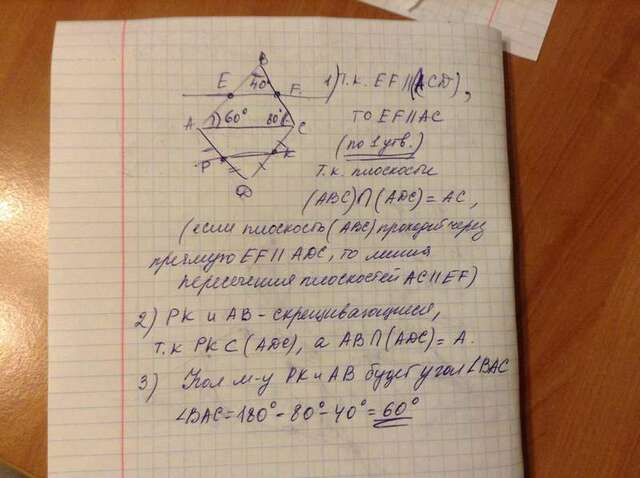 B
E 40° F
A 60° 80° C
P K
D
1) Т.к. EF || (ACD),
то EF || AC
(по 1 утв.)
Т.к. плоскости
(ABC) ∩ (ADC) = AC,
(если плоскость (ABC) проходит через
прямую EF || ADC, то линия
пересечения плоскостей AC || EF)
2) PK и AB - скрещивающиеся,
т.к PK ⊂ (ADC), а AB ∩ (ADC) = A.
3) Угол м-у PK и AB будет угол ∠BAC
∠BAC = 180° - 80° - 40° = 60°